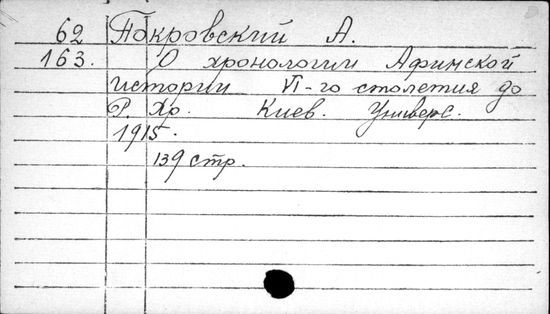 62 Покровский А.
163. О хронологии Афинской
истории VI-го столетия до
Р. Хр. Киев. Универс.
1915.
139 стр.